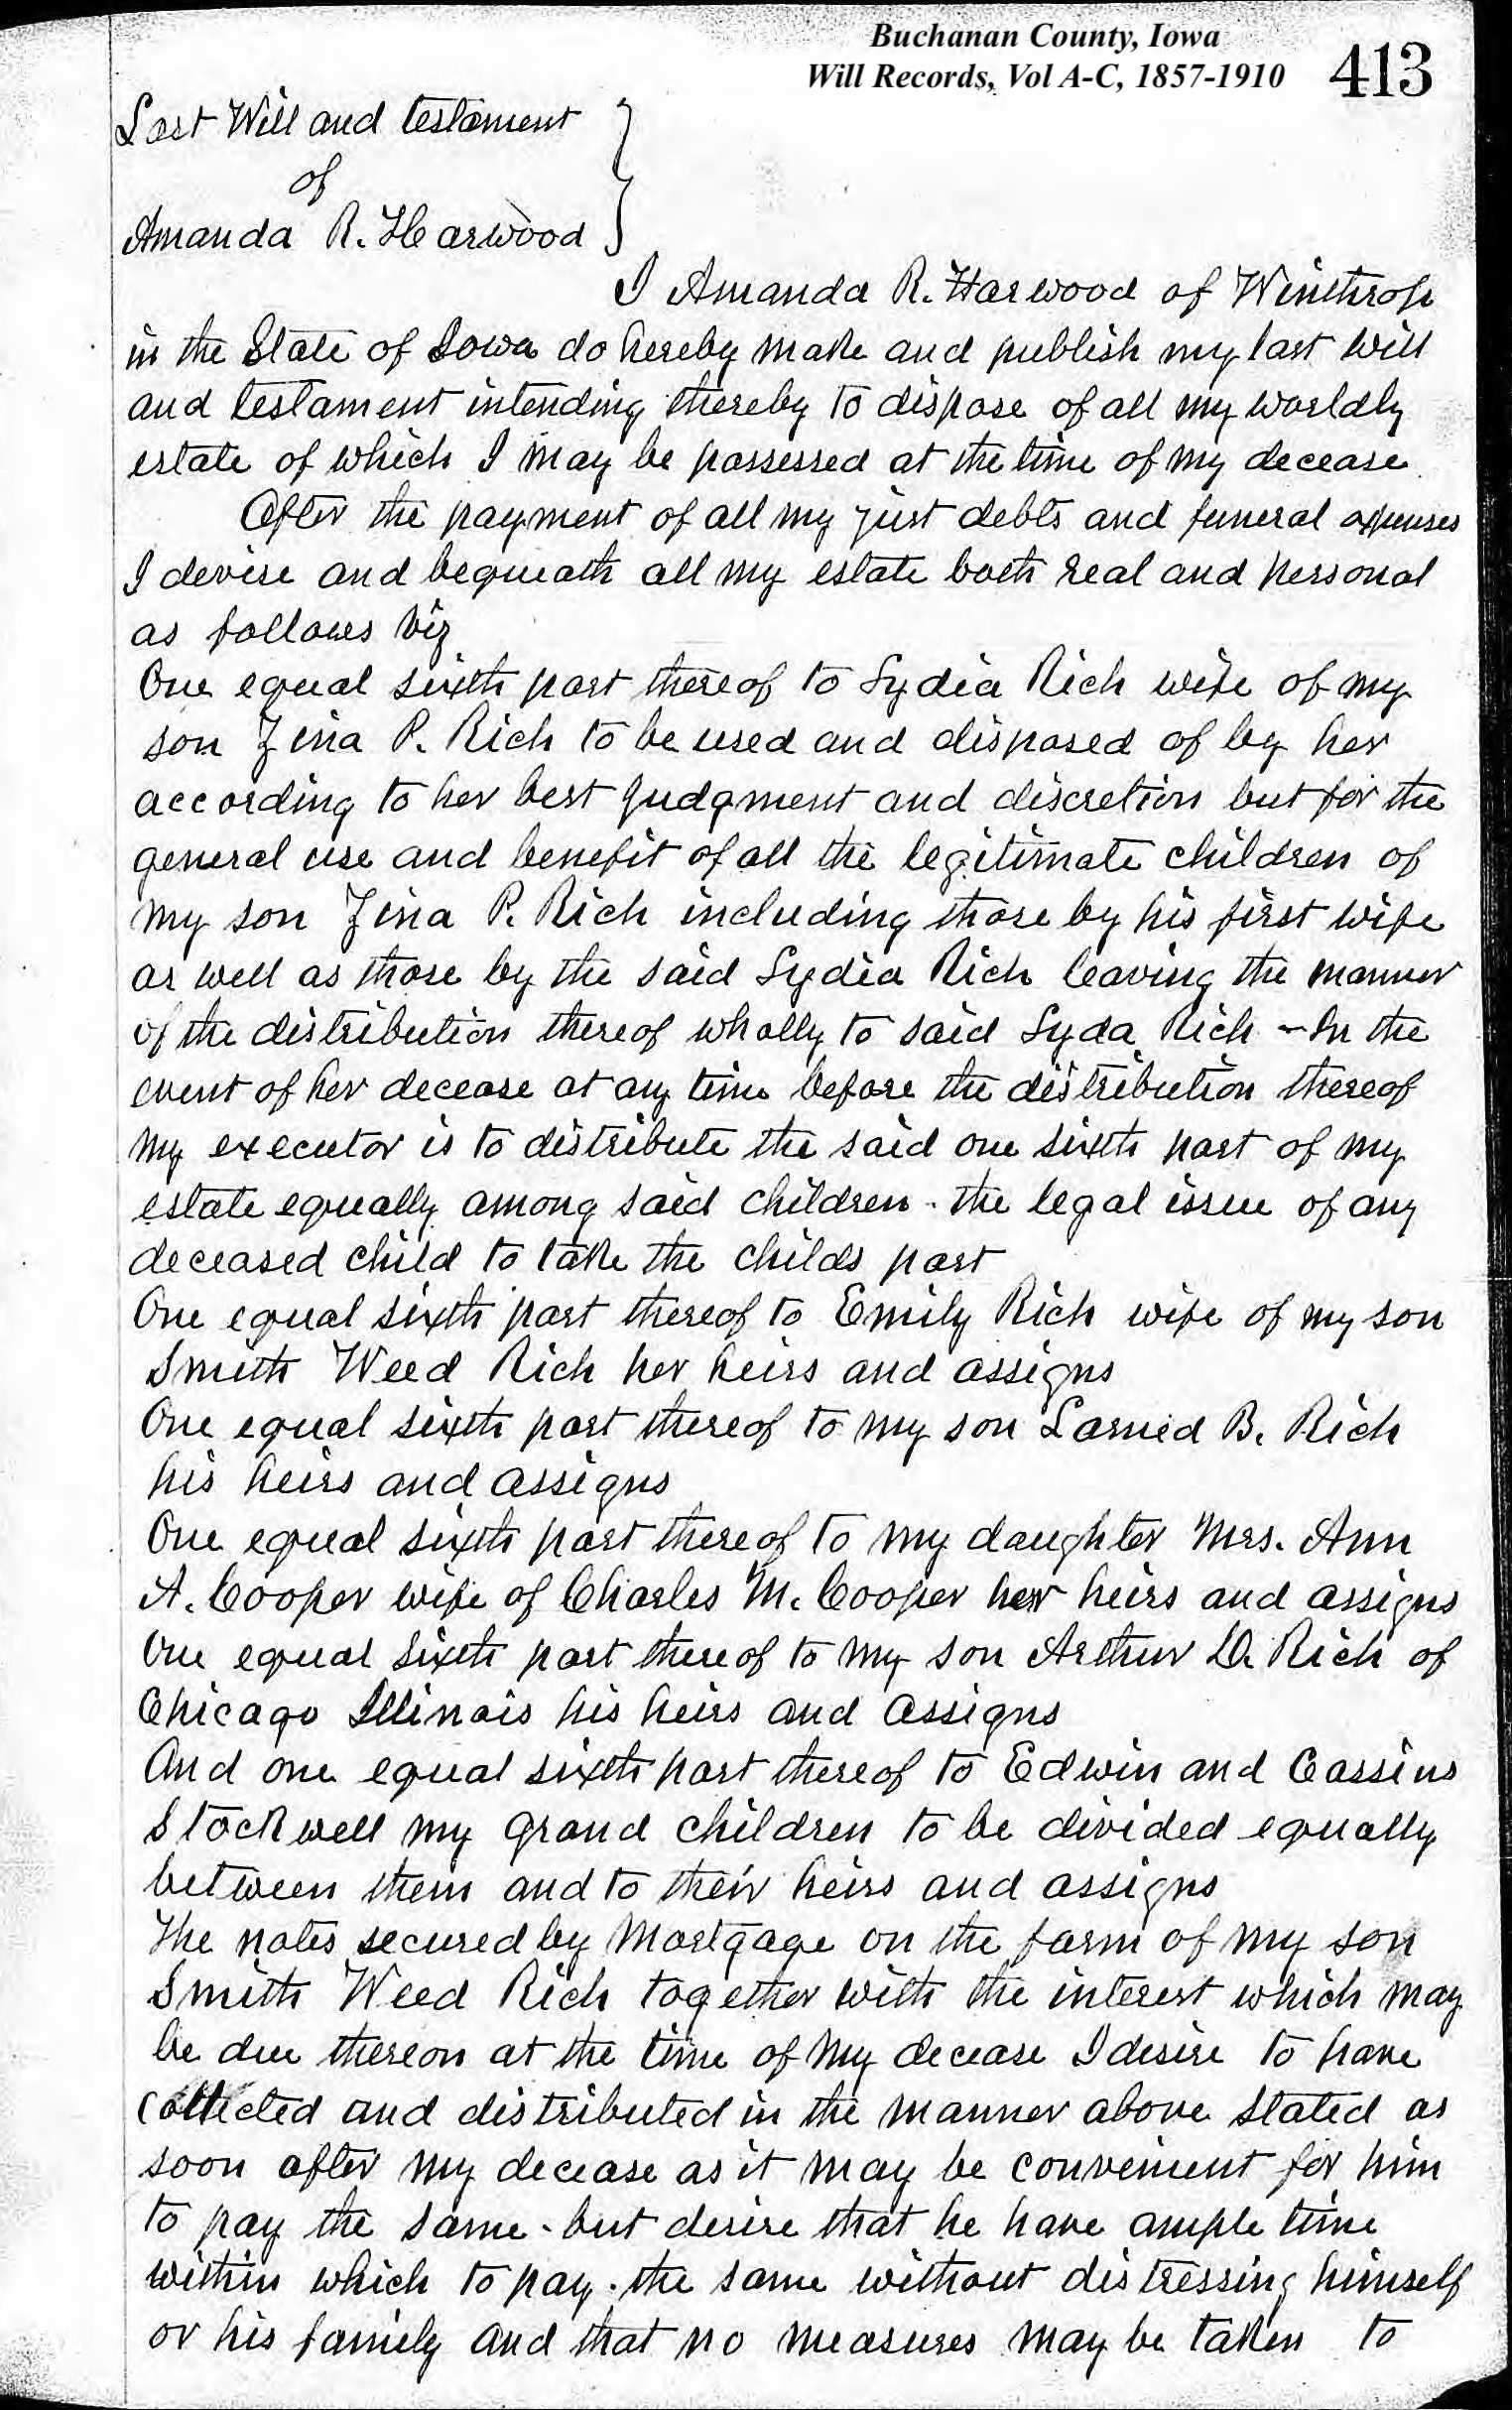 Buchanan County, Iowa
Will Records, Vol A-C, 1857-1910
413
Last Will and testament
of
Amanda R. Harwood
I Amanda R. Harwood of Winthrop
in the State of Iowa do hereby make and publish my last will
and testament intending thereby to dispose of all my worldly
estate of which I may be possessed at the time of my decease
After the payment of all my just debts and funeral expenses
I devise and bequeath all my estate both real and personal
as follows viz
One equal sixth part thereof to Lydia Rich wife of my
son Zina P. Rich to be used and disposed of by her
according to her best judgment and discretion but for the
general use and benefit of all the legitimate children of
my son Zina P. Rich including those by his first wife
as well as those by the said Lydia Rich leaving the manner
of the distribution thereof wholly to said Lyda Rich - In the
event of her decease at any time before the distribution thereof
my executor is to distribute the said one sixth part of my
estate equally among said children - the legal issue of any
deceased child to take the childs part
One equal sixth part thereof to Emily Rich wife of my son
Smith Weed Rich her heirs and assigns
One equal sixth part thereof to my son Larned B. Rich
his heirs and assigns
One equal sixth part thereof to my daughter Mrs. Ann
A. Cooper wife of Charles M. Cooper her heirs and assigns
One equal sixth part thereof to my son Arthur D. Rich of
Chicago Illinois his heirs and assigns
And one equal sixth part thereof to Edwin and Cassius
Stockwell my grand children to be divided equally
between them and to their heirs and assigns
The notes secured by Mortgage on the farm of my son
Smith Weed Rich together with the interest which may
be due thereon at the time of my decease I desire to have
collected and distributed in the manner above stated as
soon after my decease as it may be convenient for him
to pay the same - but desire that he have ample time
within which to pay the same without distressing himself
or his family and that no measures may be taken to